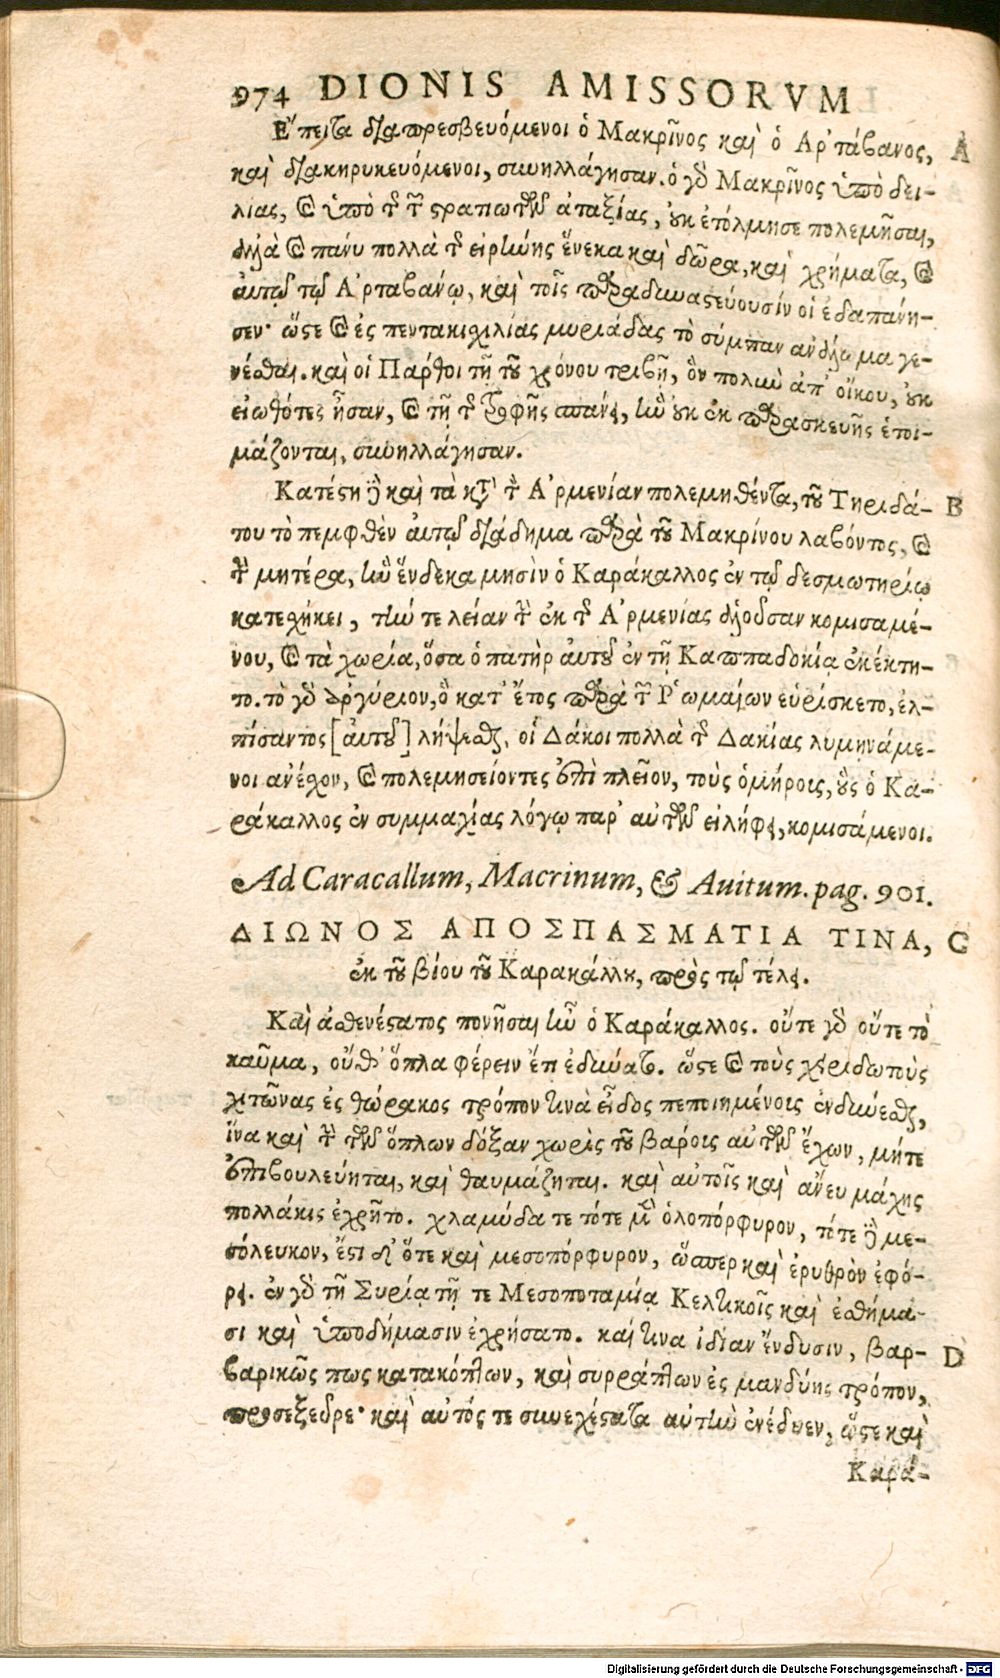 974 DIONIS AMISSORVM
Ἔπειτα διαπρεσβευόμενοι ὁ Μακρῖνος καὶ ὁ Ἀρτάβανος, A
καὶ διακηρυκευόμενοι, συνηλλάγησαν. ὁ γὰρ Μακρῖνος ὑπὸ δει-
λίας, καὶ ὑπὸ τῆς τῶν στρατιωτῶν ἀταξίας, οὐκ ἐτόλμησε πολεμῆσαι,
ἀλλὰ καὶ πάνυ πολλὰ τῆς εἰρήνης ἕνεκα καὶ δῶρα, καὶ χρήματα, καὶ
αὐτῷ τῷ Ἀρταβάνῳ, καὶ τοῖς παραδυναστεύουσίν οἱ ἐδαπάνη-
σεν· ὥστε καὶ ἐς πεντακιχιλίας μυριάδας τὸ σύμπαν ἀνάλωμα γε-
νέσθαι. καὶ οἱ Πάρθοι τῇ τοῦ χρόνου τριβῇ, ὃν πολὺν ἀπ’ οἴκου, οὐκ
εἰωθότες ἦσαν, καὶ τῇ τῆς τροφῆς σπάνει, ἣν οὐκ ἐκ παρασκευῆς ἑτοι-
μάζονται, συνηλλάγησαν.
Κατέστη δὲ καὶ τὰ κατὰ τὴν Ἀρμενίαν πολεμηθέντα, τοῦ Τηριδά- B
του τὸ πεμφθὲν αὐτῷ διάδημα παρὰ τοῦ Μακρίνου λαβόντος, καὶ
τὴν μητέρα, ἣν ἕνδεκα μησὶν ὁ Καράκαλλος ἐν τῷ δεσμωτηρίῳ
κατεσχήκει, τήν τε λείαν τὴν ἐκ τῆς Ἀρμενίας ἁλοῦσαν κομισαμέ-
νου, καὶ τὰ χωρία, ὅσα ὁ πατὴρ αὐτοῦ ἐν τῇ Καππαδοκίᾳ ἐκέκτη-
το. τὸ γὰρ ἀργύριον, ὃ κατ’ ἔτος παρὰ τῶν Ῥωμαίων εὑρίσκετο, ἐλ-
πίσαντος [αὐτοῦ] λήψεσθαι, οἱ Δάκοι πολλὰ τῆς Δακίας λυμηνάμε-
νοι ἀνέσχον, καὶ πολεμησείοντες ἐπὶ πλεῖον, τοὺς ὁμήρους, οὓς ὁ Κα-
ράκαλλος ἐν συμμαχίας λόγῳ παρ’ αὐτῶν εἰλήφει, κομισάμενοι.
Ad Caracallum, Macrinum, & Auitum. pag. 901.
ΔΙΩΝΟΣ ΑΠΟΣΠΑΣΜΑΤΙΑ ΤΙΝΑ, C
ἐκ τοῦ βίου τοῦ Καρακάλλου, πρὸς τῷ τέλει.
Καὶ ἀσθενέστατος πονῆσαι ἦν ὁ Καράκαλλος. οὔτε γὰρ οὔτε τὸ
καῦμα, οὔθ’ ὅπλα φέρειν ἔτι ἐδύνατο. ὥστε καὶ τοὺς χειριδωτοὺς
χιτῶνας ἐς θώρακος τρόπον τινὰ εἶδος πεποιημένους ἐνδύνεσθαι,
ἵνα καὶ τὴν τῶν ὅπλων δόξαν χωρὶς τοῦ βάρους αὐτῶν ἔχων, μήτε
ἐπιβουλεύηται, καὶ θαυμάζηται. καὶ αὐτοῖς καὶ ἄνευ μάχης
πολλάκις ἐχρῆτο. χλαμύδα τε τότε μὲν ὁλοπόρφυρον, τότε δὲ με-
σόλευκον, ἔστι δ’ ὅτε καὶ μεσοπόρφυρον, ὥσπερ καὶ ἐρυθρὸν ἐφό-
ρει. ἐν γὰρ τῇ Συρίᾳ τῇ τε Μεσοποταμίᾳ Κελτικοῖς καὶ ἐσθήμα-
σι καὶ ὑποδήμασιν ἐχρήσατο. καί τινα ἰδίαν ἔνδυσιν, βαρ- D
βαρικῶς πως κατακόπτων, καὶ συρράπτων ἐς μανδύης τρόπον,
προσεξεῦρε· καὶ αὐτός τε συνεχέστατα αὐτὴν ἐνέδυεν, ὥστε καὶ
Καρά-
Digitalisierung gefördert durch die Deutsche Forschungsgemeinschaft - DFG